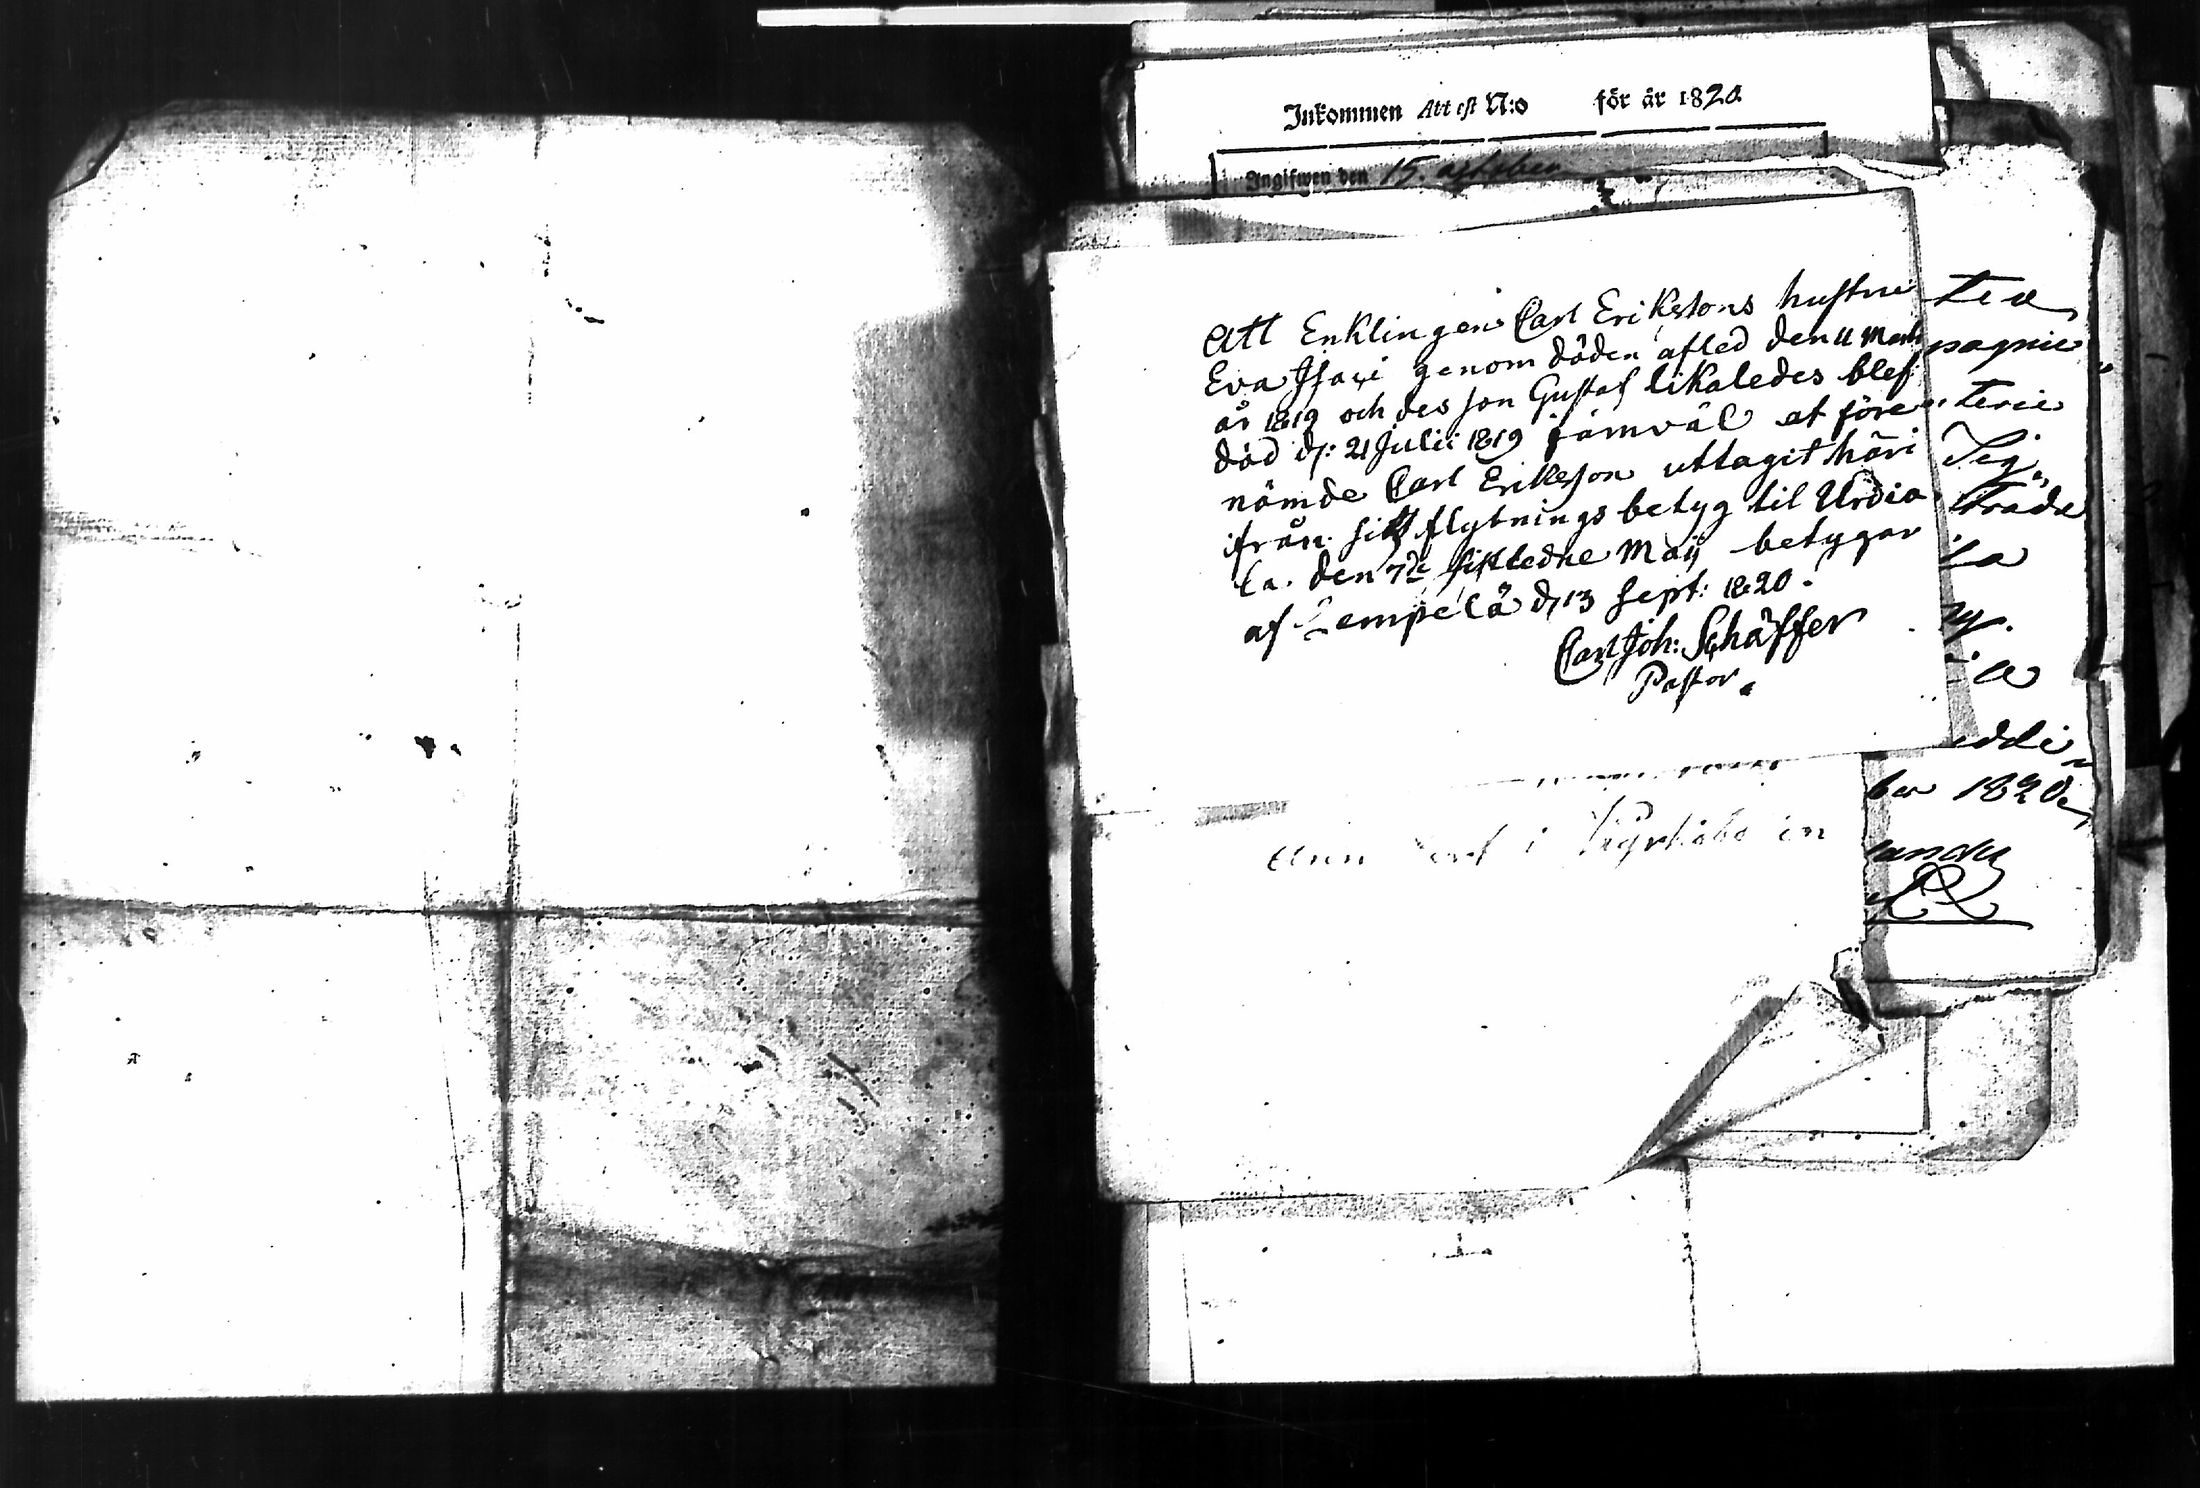 Inkommen Attest N:o för år 1820
Ingifwen den 15. october
Att Enklingens Carl Eriksons hustru
Eva Isaci genom döden afled den 11 Mart
år 1819 och des son Gustaf likaledes blef
död d: 21 Julii 1819 jämväl at före
nämde Carl Erikson uttagit häri
från sitt flytnings betyg til Urdia
la. den 7de sistledne Maij betygar
af Lempälä d. 13 Sept: 1820.
Carl Joh: Schäffer
Pastor.
pagnie
terie
trade
la
ber 1820
i in